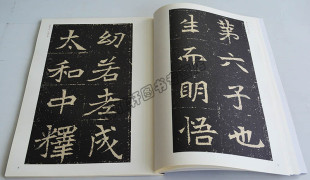 第六子也
生而明悟
幼若老成
太和中釋